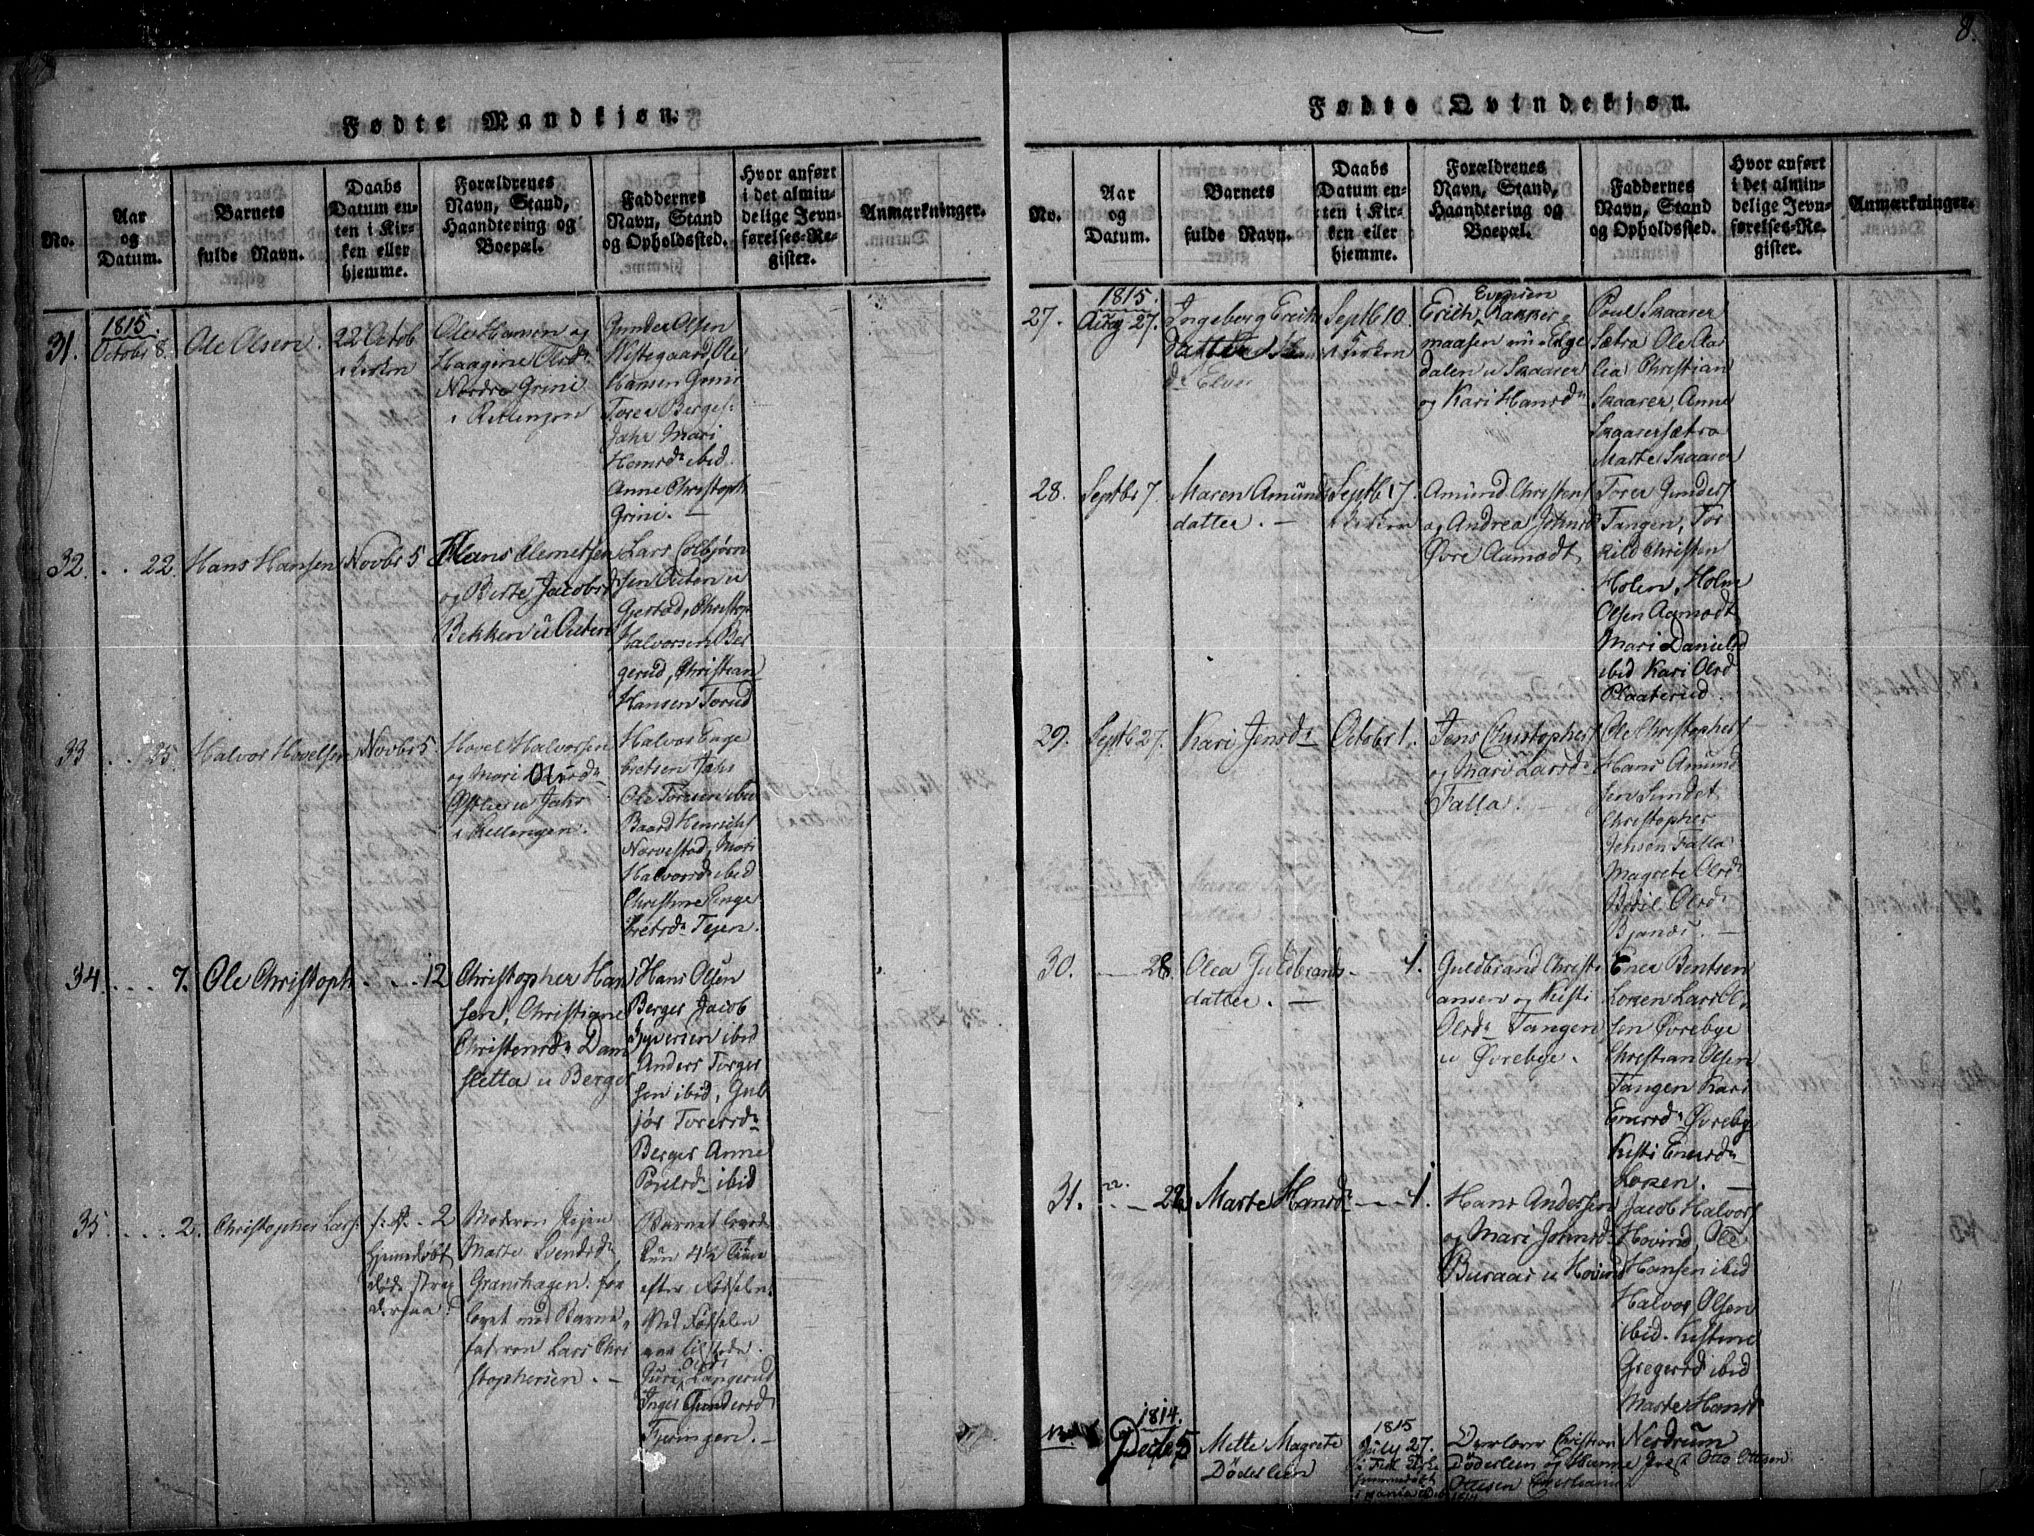 8.
Fødte Mandkjøn.
No.
Aar
og
Datum.
Barnets
fulde Navn.
Daabs
Datum en-
ten i Kir-
ken eller
hjemme.
Forældrenes
Navn, Stand,
Haandtering og
Boepæl.
Faddernes
Navn, Stand
og Opholdssted.
Hvor anført
i det almin-
delige Jevn-
førelses-Re-
gister.
Anmærkninger.
31.
1815.
Octobr 8.
Ole Olsen.
22 Octob
i Kirken
Ole Hansen og
Haagine Olsdn
Nordre Grini
Gunder Olsen
Westegaard, Ole
Hansen Grini
Torer Berges:
Jahr Mari
Hansdn ibid
Anne Christoph
Grini. —
32. . . 22.
Hans Hansen
Novbr 5
Hans Clemetsen
og Berte Jacobsd
Bekken u Outen
Lars Colbjørn
sen Outen u
Gjerstad, Christoph
Halvorsen Ber
gerud, Christian
Hansen Torud
33 . . . 25.
Halvor Hovelsen
Novbr 5.
Hovel Halvorsen
og Mari Olsdn
u Jahr
Halvor Enge
bretsen Jahr
Ole Toresen ibid
Baard Henrichs
Narvestad, Mari
Halvorsdn ibid
Christine Enge
bretsdn Tejen.
34. . . . 7.
Ole Christoph.
. . . 12
Christopher Han
sen, Christiane
Christensdn Dam
sletta u Berger
Hans Olsen
Berger Jacob
Syversen ibid
Anders Torger
sen ibid, Gul
jør Toresdn
Berger Anne
Poulsdn ibid
35 . . . . 2.
Christopher Lars:
2
hjemmedøbt
døde strax
derpaa
Moderen Pigen
Marte Svendsdn
Granshagen. for
lovet med Barne
faderen Lars Chri
stophersen. —
Barnet levede
kun 4½ Time
efter Fødselen.
Ved Fødselen
var tilstede.
Guri Olsdn Langerud
Inger Gundersd
Fjeringen. —
Fødte Qvindekjøn.
No.
Aar
og
Datum.
Barnets
fulde Navn.
Daabs
Datum en-
ten i Kir-
ken eller
hjemme.
Forældrenes
Navn, Stand,
Haandtering og
Boepæl.
Faddernes
Navn, Stand
og Opholdssted.
Hvor anført
i det almin-
delige Jevn-
førelses-Re-
gister.
Anmærkninger.
27.
1815.
Aug 27.
Ingeborg Erichs
datter
Septb 10.
i Kirken
Erich Evensen Kakker
maasen
dalen u Skaarer
og Kari Hansdn
Poul Skaarer
Sætra Ole Aa
lia Christian
Skaarer, Anne
Skaarersætra
Marte Skaarer
28. Septbr 7.
Maren Amunds
datter. —
Septb 17.
i Kirken
Amund Christens
og Andrea Johnsd
Øvre Aamodt
Torer Gunders
Tangen, Tor
kild Christen
Holen, Holm
Olsen Aamodt
Mari Danielsd
ibid Kari Olsd
Plaaterud.
29. Septb 27.
Kari Jensdn
Octobr 1.
Jens Christophers
og Mari Larsdn
Falla.
Ole Christophers
Hans Amund
sen Sundet
Christopher
Jensen Falla
Magrete Olsdn
Beril Olsdn
30. — 28.
Olea Guldbrands
datter. —
— 1.
Guldbrand Christi
ansen og Kisti
Olsdn Tangen
u Øvrebye.
Ener Bentsen
Losen Lars Ol
sen Øvrebye
Christian Olsen
Tangen Kari
Enersdn Øvreby
Kisti Enersdn
Losen. —
31. — 22
Marte Hansdn
— 1.
Hans Andersen
og Mari Johnsdn
Buraas u Hovind
Jacob Halvors
Hovind, Ole
Hansen ibid
Halvor Olsen
ibid. Kistine
Gregersd ibid
Marte Hansd
Nerdrum
1814.
Mette Magrete
Døderlein
1815
July 27.
Christian
Døderlein og Hanne
Ottesen Christiania
Otto Ottesen